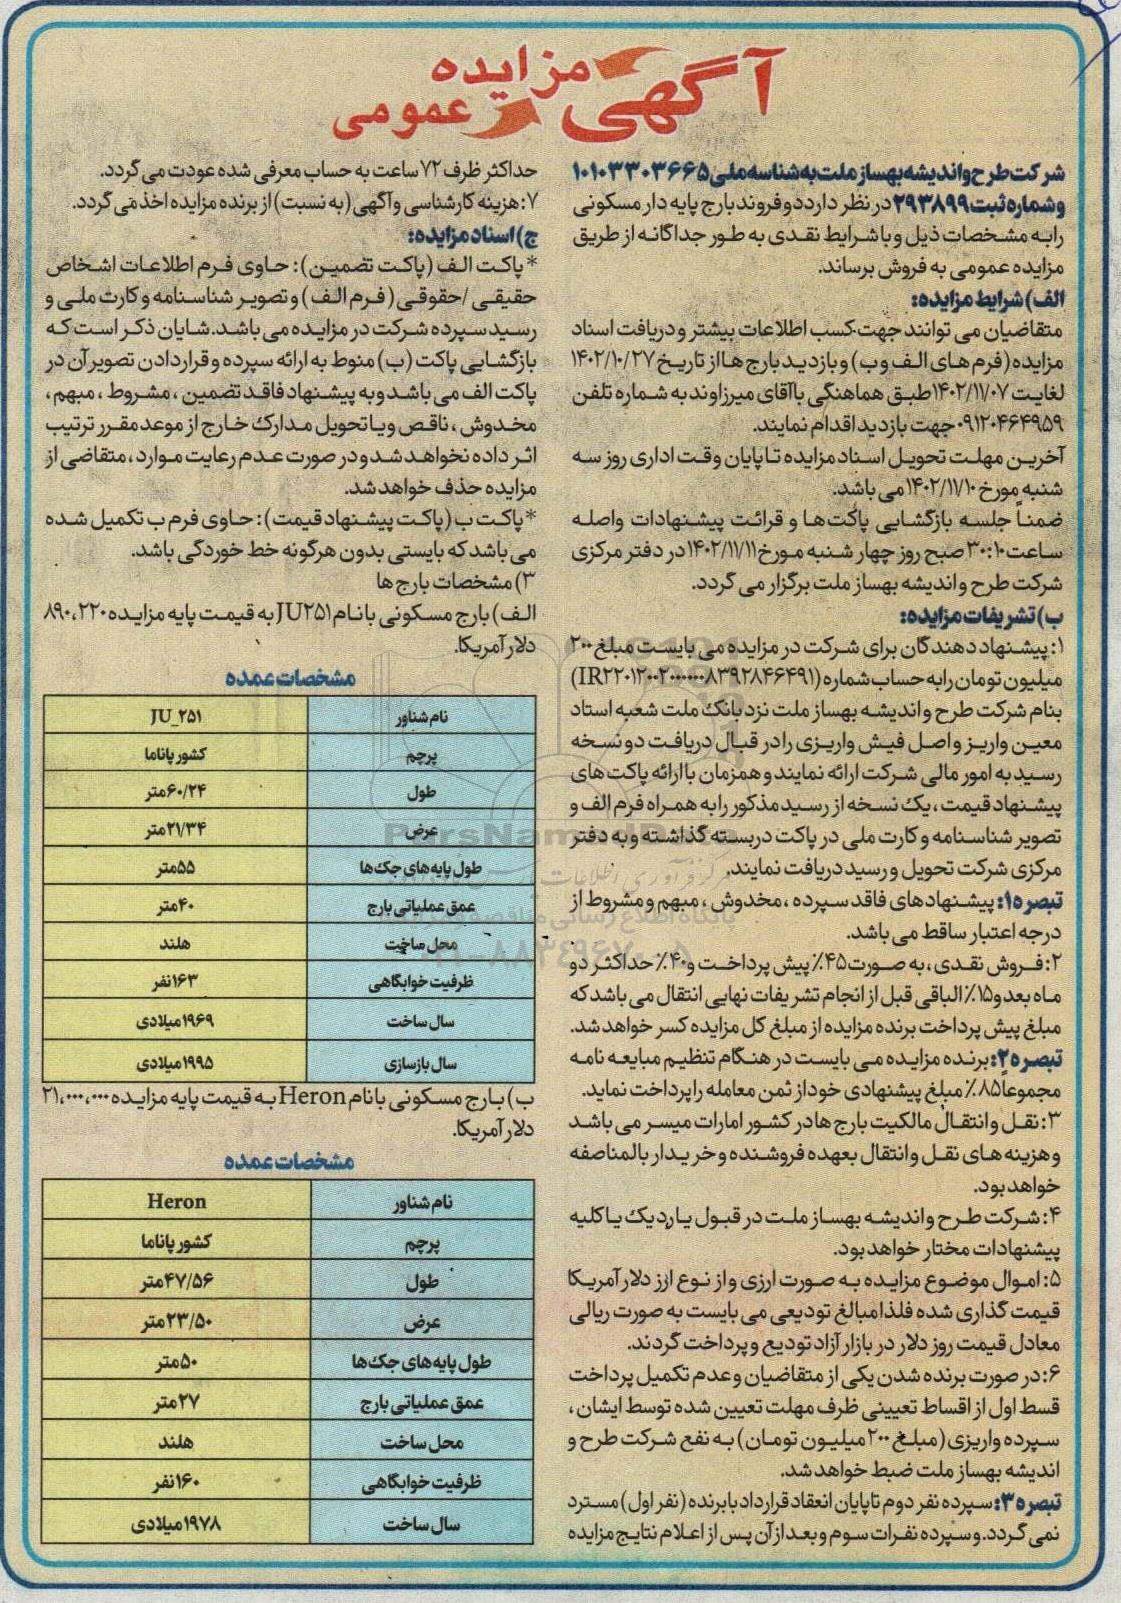 آگهی مزایده عمومی
شرکت طرح و اندیشه بهساز ملت به شناسه ملی ۱۰۱۰۳۳۰۳۶۶۵
و شماره ثبت ۲۹۳۸۹۹ در نظر دارد دو فروند بارج پایه دار مسکونی
را به مشخصات ذیل و با شرایط نقدی به طور جداگانه از طریق
مزایده عمومی به فروش برساند.
الف) شرایط مزایده:
متقاضیان می توانند جهت کسب اطلاعات بیشتر و دریافت اسناد
مزایده (فرم های الف و ب) و بازدید بارج ها از تاریخ ۱۴۰۲/۱۰/۲۷
لغایت ۱۴۰۲/۱۱/۰۷ طبق هماهنگی با آقای میرزاوند به شماره تلفن
۰۹۱۲۰۴۶۴۹۵۹ جهت بازدید اقدام نمایند.
آخرین مهلت تحویل اسناد مزایده تا پایان وقت اداری روز سه
شنبه مورخ ۱۴۰۲/۱۱/۱۰ می باشد.
ضمناً جلسه بازگشایی پاکت ها و قرائت پیشنهادات واصله
ساعت ۳۰:۱۰ صبح روز چهار شنبه مورخ ۱۴۰۲/۱۱/۱۱ در دفتر مرکزی
شرکت طرح و اندیشه بهساز ملت برگزار می گردد.
ب) تشریفات مزایده:
۱: پیشنهاد دهندگان برای شرکت در مزایده می بایست مبلغ ۲۰۰
میلیون تومان را به حساب شماره
بنام شرکت طرح و اندیشه بهساز ملت نزد بانک ملت شعبه استاد
معین واریز و اصل فیش واریزی را در قبال دریافت دو نسخه
رسید به امور مالی شرکت ارائه نمایند و همزمان با ارائه پاکت های
پیشنهاد قیمت، یک نسخه از رسید مذکور را به همراه فرم الف و
تصویر شناسنامه و کارت ملی در پاکت دربسته گذاشته و به دفتر
مرکزی شرکت تحویل و رسید دریافت نمایند.
تبصره۱: پیشنهادهای فاقد سپرده، مخدوش، مبهم و مشروط از
درجه اعتبار ساقط می باشد.
۲: فروش نقدی، به صورت ۴۵٪ پیش پرداخت و ۴۰٪ حداکثر دو
ماه بعد و ۱۵٪ الباقی قبل از انجام تشریفات نهایی انتقال می باشد که
مبلغ پیش پرداخت برنده مزایده از مبلغ کل مزایده کسر خواهد شد.
تبصره۲: برنده مزایده می بایست در هنگام تنظیم مبایعه نامه
مجموعاً ۸۵٪ مبلغ پیشنهادی خود از ثمن معامله را پرداخت نماید.
۳: نقل و انتقال مالکیت بارج ها در کشور امارات میسر می باشد
و هزینه های نقل و انتقال بعهده فروشنده و خریدار بالمناصفه
خواهد بود.
۴: شرکت طرح و اندیشه بهساز ملت در قبول یا رد یک یا کلیه
پیشنهادات مختار خواهد بود.
۵: اموال موضوع مزایده به صورت ارزی و از نوع ارز دلار آمریکا
قیمت گذاری شده فلذا مبالغ تودیعی می بایست به صورت ریالی
معادل قیمت روز دلار در بازار آزاد تودیع و پرداخت گردند.
۶: در صورت برنده شدن یکی از متقاضیان و عدم تکمیل پرداخت
قسط اول از اقساط تعیینی ظرف مهلت تعیین شده توسط ایشان،
سپرده واریزی (مبلغ ۲۰۰ میلیون تومان) به نفع شرکت طرح و
اندیشه بهساز ملت ضبط خواهد شد.
تبصره۳: سپرده نفر دوم تا پایان انعقاد قرارداد با برنده (نفر اول) مسترد
نمی گردد. و سپرده نفرات سوم و بعد از آن پس از اعلام نتایج مزایده
حداکثر ظرف ۷۲ ساعت به حساب معرفی شده عودت می گردد.
۷: هزینه کارشناسی و آگهی (به نسبت) از برنده مزایده اخذ می گردد.
ج) اسناد مزایده:
* پاکت الف (پاکت تضمین): حاوی فرم اطلاعات اشخاص
حقیقی /حقوقی (فرم الف) و تصویر شناسنامه و کارت ملی و
رسید سپرده شرکت در مزایده می باشد. شایان ذکر است که
بازگشایی پاکت (ب) منوط به ارائه سپرده و قراردادن تصویر آن در
پاکت الف می باشد و به پیشنهاد فاقد تضمین، مشروط، مبهم،
مخدوش، ناقص و یا تحویل مدارک خارج از موعد مقرر ترتیب
اثر داده نخواهد شد و در صورت عدم رعایت موارد، متقاضی از
مزایده حذف خواهد شد.
* پاکت ب (پاکت پیشنهاد قیمت): حاوی فرم ب تکمیل شده
می باشد که بایستی بدون هرگونه خط خوردگی باشد.
۳) مشخصات بارج ها
الف) بارج مسکونی با نام JU۲۵۱ به قیمت پایه مزایده ۸۹۰,۲۲۰
دلار آمریکا.
مشخصات عمده
نام شناور JU_۲۵۱
پرچم کشور پاناما
طول ۶۰/۲۴ متر
عرض ۲۱/۳۴ متر
طول پایه های جک ها ۵۵ متر
عمق عملیاتی بارج ۴۰ متر
محل ساخت هلند
ظرفیت خوابگاهی ۱۶۳ نفر
سال ساخت ۱۹۶۹ میلادی
سال بازسازی ۱۹۹۵ میلادی
ب) بارج مسکونی با نام Heron به قیمت پایه مزایده ۲۱,۰۰۰,۰۰۰
دلار آمریکا.
مشخصات عمده
نام شناور Heron
پرچم کشور پاناما
طول ۴۷/۵۶ متر
عرض ۲۳/۵۰ متر
طول پایه های جک ها ۵۰ متر
عمق عملیاتی بارج ۲۷ متر
محل ساخت هلند
ظرفیت خوابگاهی ۱۶۰ نفر
سال ساخت ۱۹۷۸ میلادی